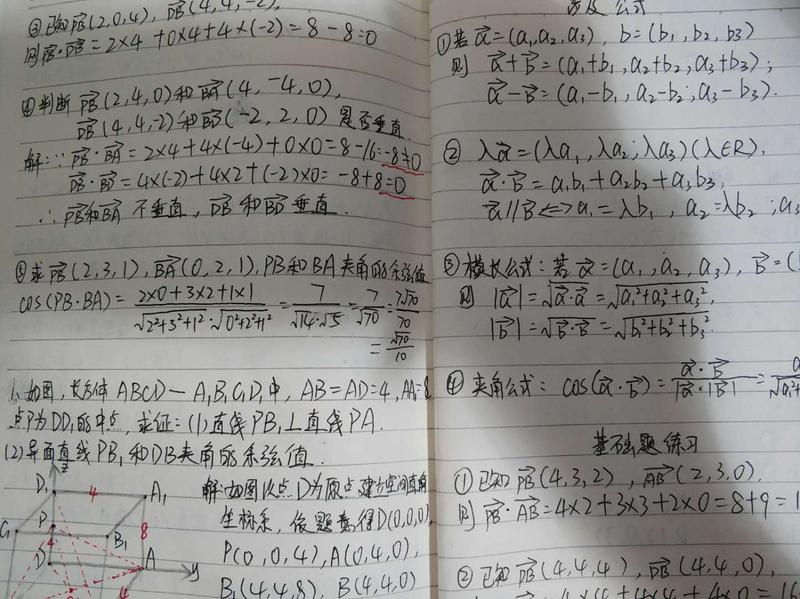 ③已知PB(2,0,4), DB(4,4,-2),
则PB·DB=2×4+0×4+4×(-2)=8-8=0
④判断PB(2,4,0)和BA(4,-4,0),
DB(4,4,-2)和BD(-2,2,0)是否垂直.
解:∵PB·BA=2×4+4×(-4)+0×0=8-16=-8≠0
DB·BD=4×(-2)+4×2+(-2)×0=-8+8=0
∴PB和BA不垂直,DB和BD垂直.
⑤求PB(2,3,1),BA(0,2,1),PB和BA夹角的余弦值
cos(PB·BA)=2×0+3×2+1×1/√2²+3²+1²·√0²+2²+1²=7/√14·√5=7/√70=7√70/70
=√70/10
1.如图,长方体ABCD-A₁B₁C₁D₁中,AB=AD=4,AA₁=8
点P为DD₁的中点,求证:(1)直线PB₁⊥直线PA.
(2)异面直线PB₁和DB夹角的余弦值.
解:如图以点D为原点建立空间直角
坐标系,依题意得D(0,0,0),
P(0,0,4),A(0,4,0),
B₁(4,4,8),B(4,4,0)
z
D₁
4
A₁
C₁
P
8
4
B₁
D
A
y
4
涉及公式
①若a=(a₁,a₂,a₃),b=(b₁,b₂,b₃)
则a+b=(a₁+b₁,a₂+b₂,a₃+b₃);
a-b=(a₁-b₁,a₂-b₂,a₃-b₃).
②λa=(λa₁,λa₂,λa₃)(λ∈R),
a·b=a₁b₁+a₂b₂+a₃b₃,
a∥b⇔a₁=λb₁,a₂=λb₂,a₃
③模长公式:若a=(a₁,a₂,a₃),b=(
则|a|=√a·a=√a₁²+a₂²+a₃²,
|b|=√b·b=√b₁²+b₂²+b₃².
④夹角公式:cos(a·b)=a·b/|a|·|b|=
基础题练习
①已知PB(4,3,2),AB(2,3,0).
则PB·AB=4×2+3×3+2×0=8+9=1
②已知PB(4,4,4),DB(4,4,0),
4×4+4×4+4×0=16